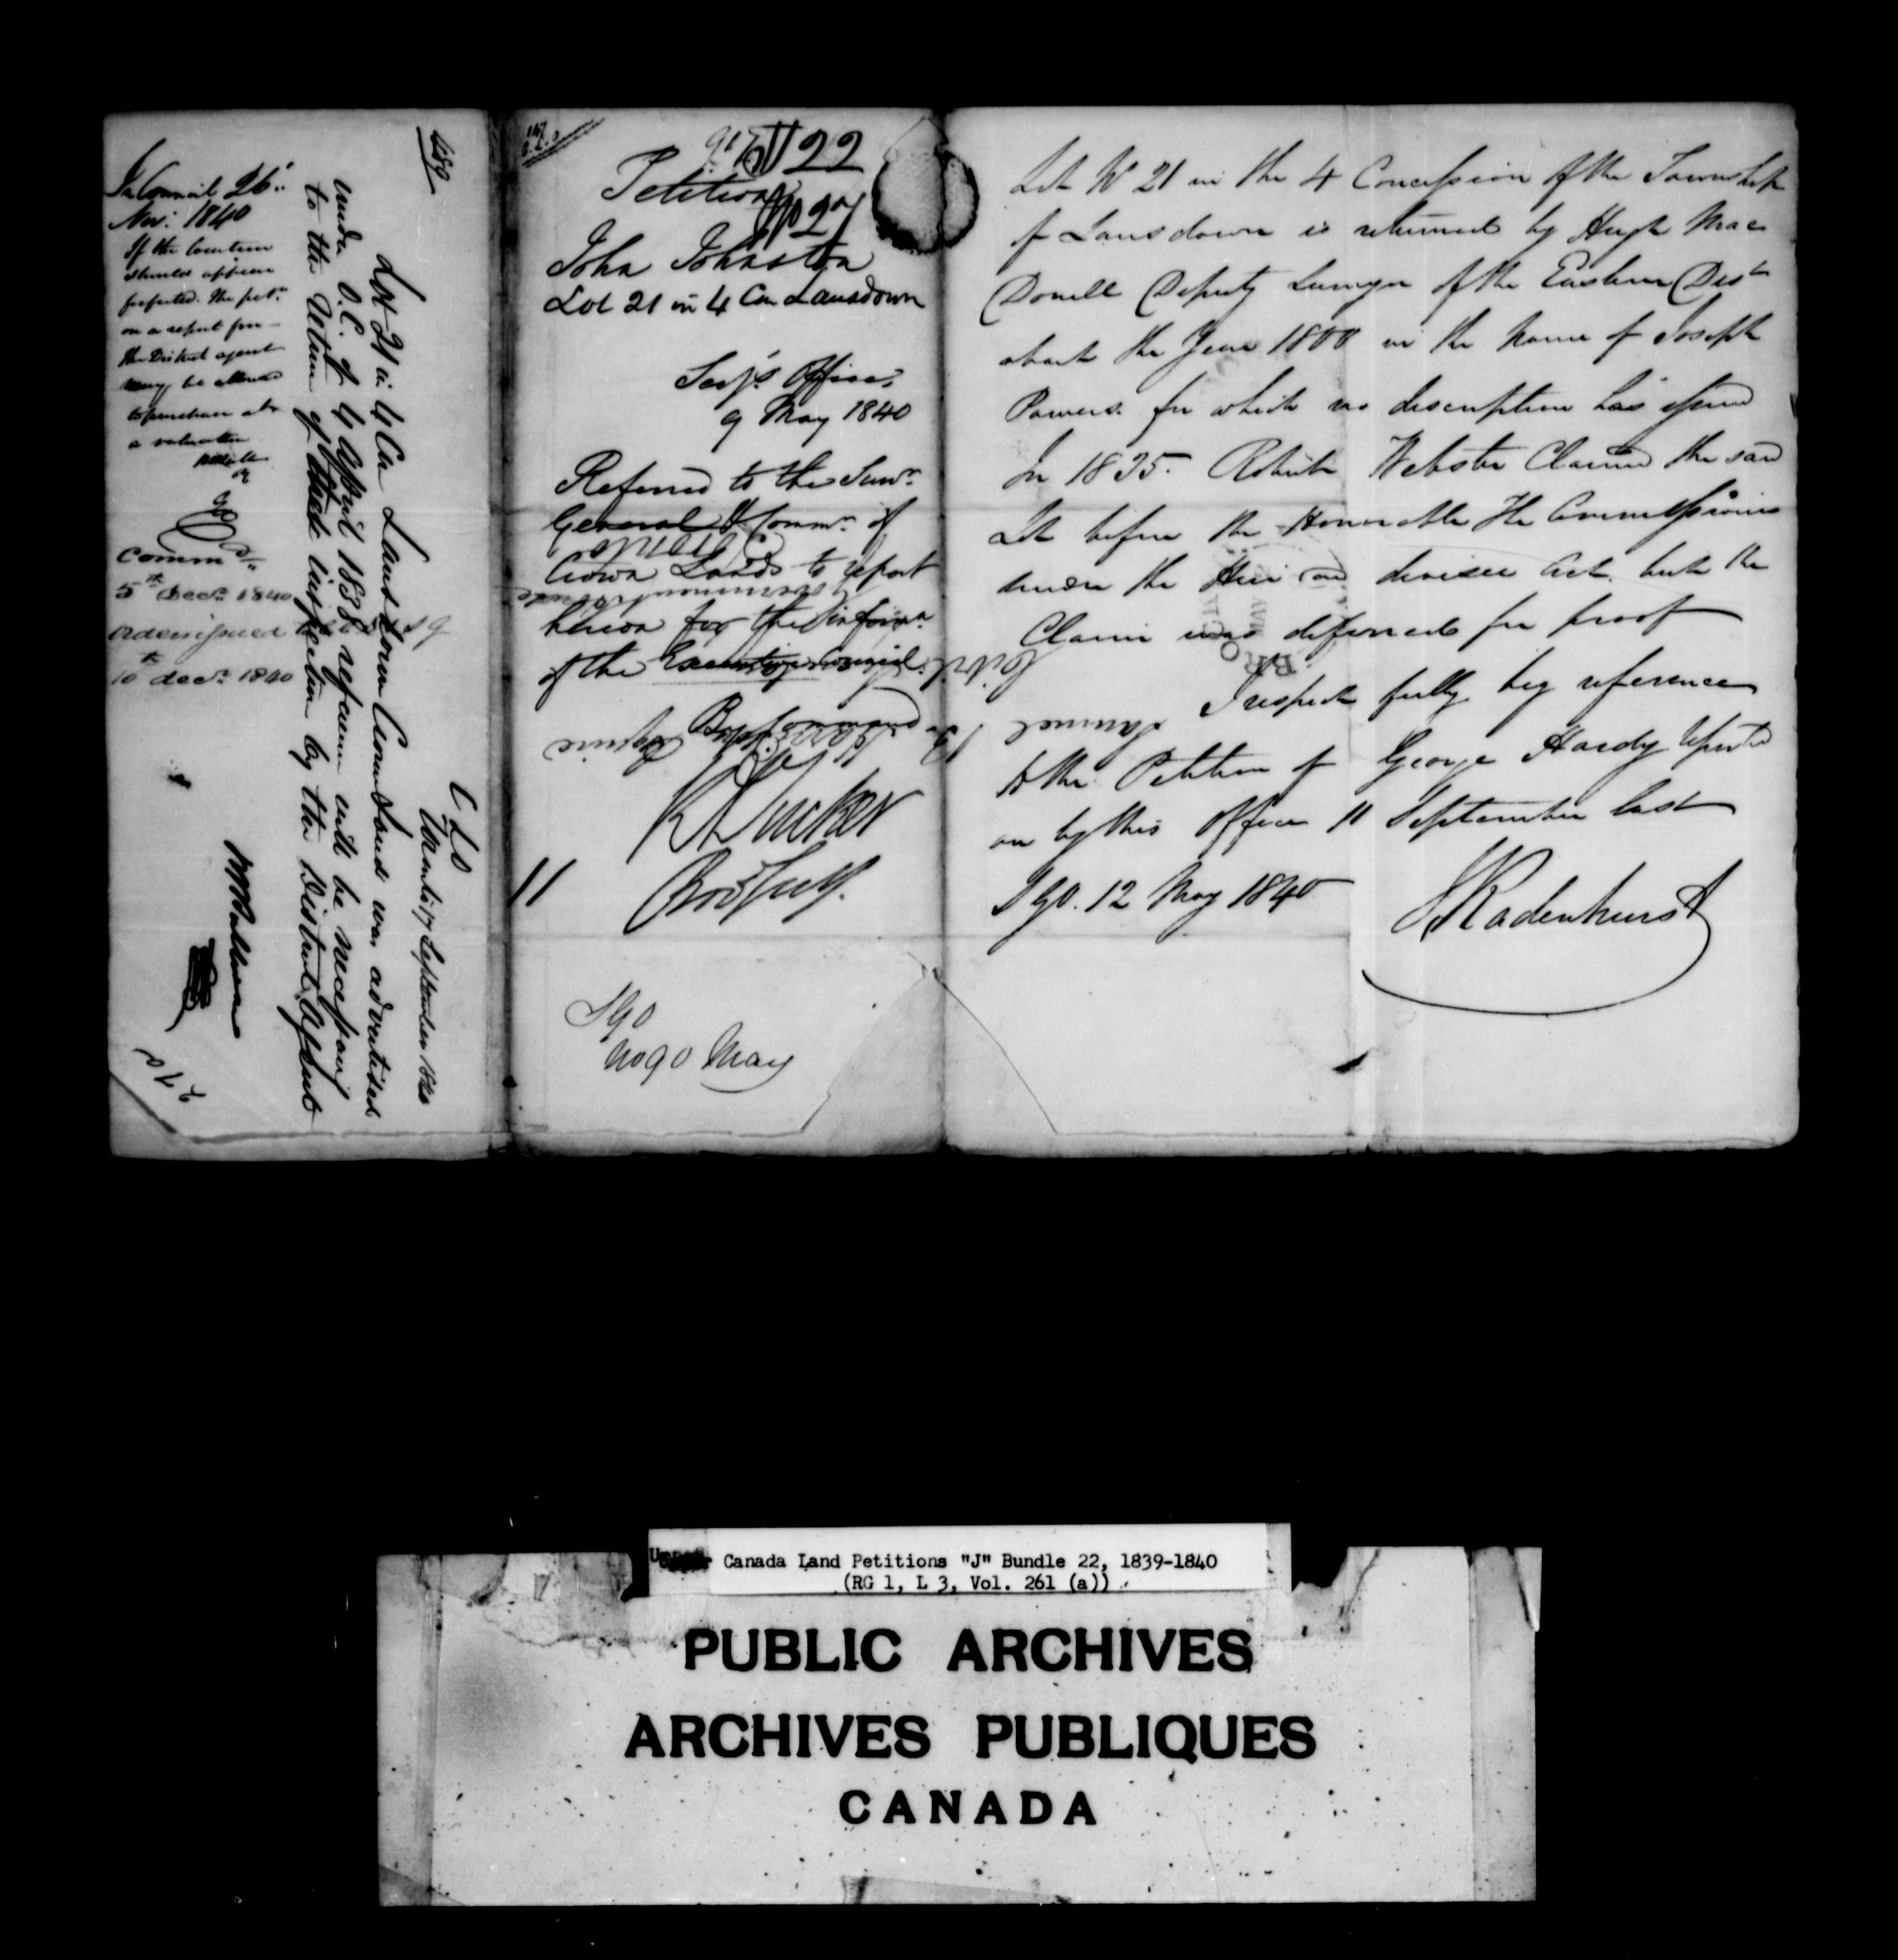 In Council 26th
Nov: 1840
If the location
should appear
forfeited. The petr
on a report from
the District agent
may be allowed
to purchase at
a valuation
Commd
5th Decr 1840
10th decr 1840
Lot 21 in 4 Con Lansdown Crown Land was advertised
under O.C. of 4 April 1839 reference will be necessary
to the return of inspection by the District Agent
C L O
17 September 1840
J 22
Petition
No 27
John Johnston
Lot 21 in 4 Con Lansdown
Secy's Office
9 May 1840
Referred to the Survr
General & Commr of
Crown Lands to report
hereon for the informn
of the Executive Council.
By Command
R A Tucker
Prov Secy.
11
S G O
No 90 May
Lot No 21 in the 4 Concession of the Township
of Lansdown is returned by Hugh Mac
Donell Deputy Surveyor of the Eastern Dist
about the Year 1800 in the name of Joseph
Powers. for which no description has issued
In 1835. Webster Claimed the said
Lot before the Honorable The Commissioners
under the Heir and devisee Act. but the
Claim was deferred for proof
I respectfully beg reference
to the Petition of George Hardy reported
on by this Office 11 September last
S G O. 12 May 1840
J Radenhurst
Canada Land Petitions "J" Bundle 22, 1839-1840
(RG 1, L 3, Vol. 261 (a))
PUBLIC ARCHIVES
ARCHIVES PUBLIQUES
CANADA